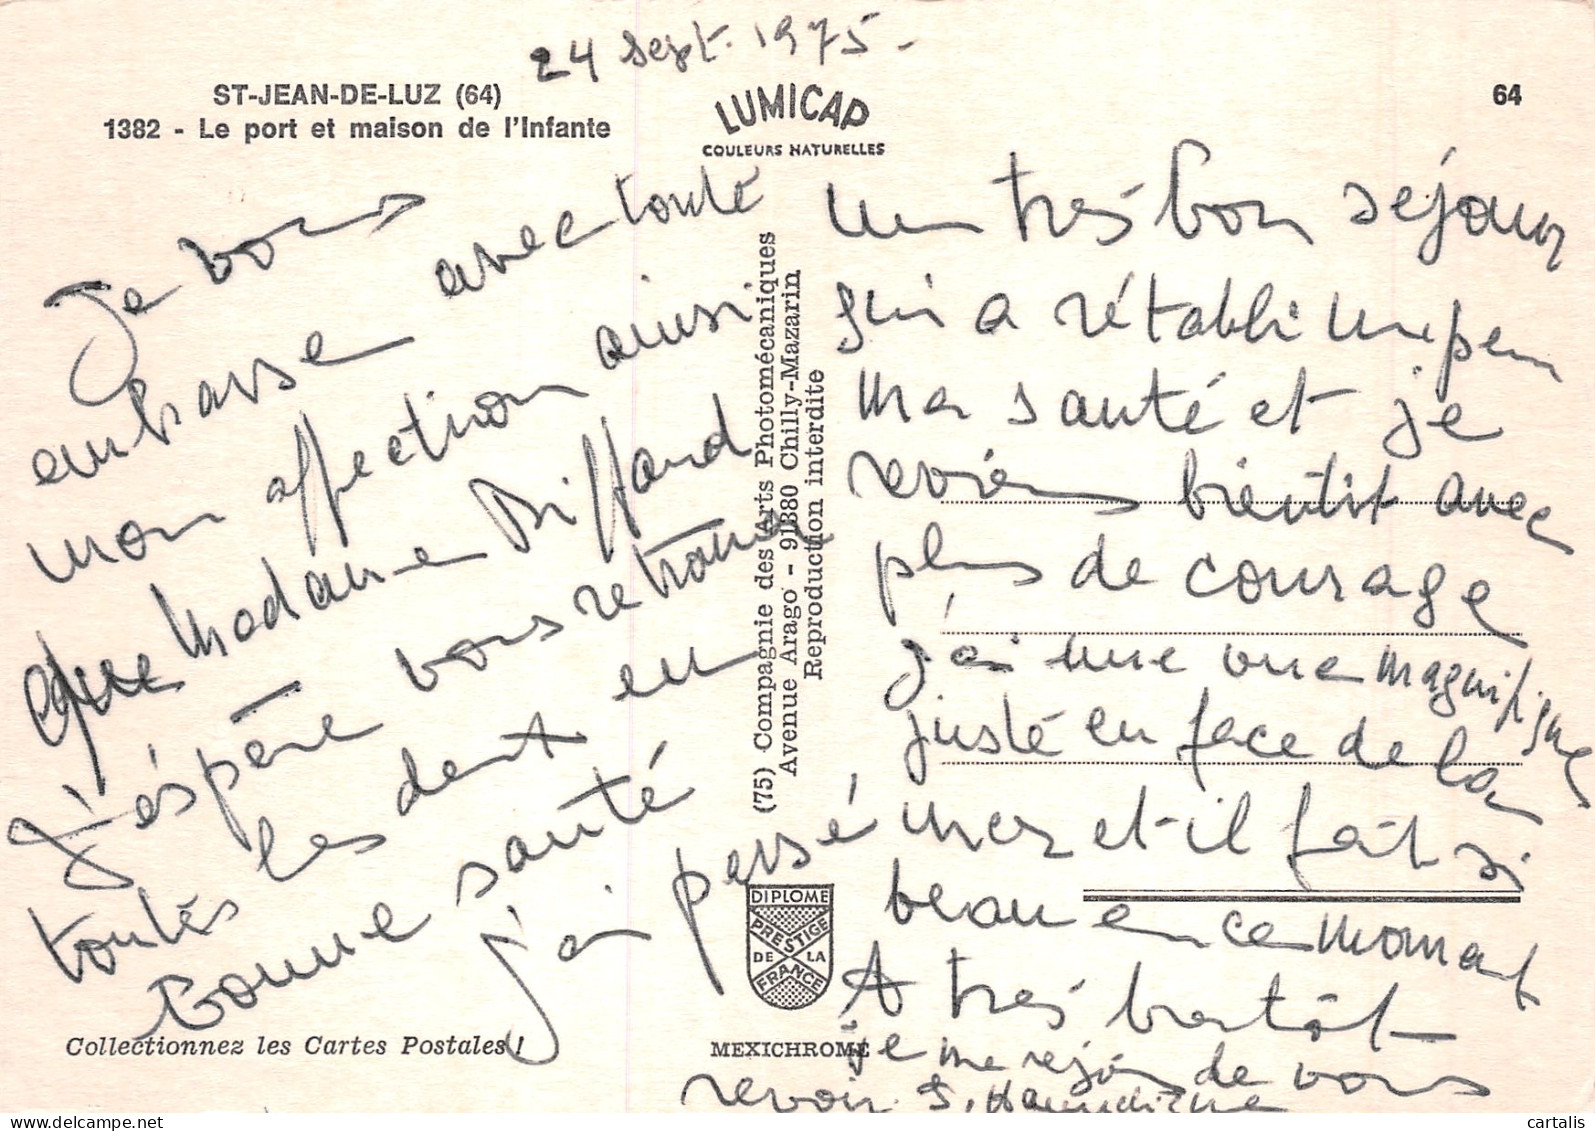 24 sept. 1975 -
ST-JEAN-DE-LUZ (64)
1382 - Le port et maison de l'Infante
LUMICAP
COULEURS NATURELLES
64
Je vous
embrasse avec toute
mon affection ainsi
que Madame Diffard
J'espère vous retrouver
toutes les deux en
bonne santé
j'ai passé
un très bon séjour
qui a rétabli un peu
ma santé et je
reviens bientôt avec
plus de courage
j'ai une vue magnifique
juste en face de la
mer et il fait si
beau en ce moment
A très bientôt
je me rejouis de vous
revoir. S.
(75) Compagnie des Arts Photomécaniques
Avenue Arago - 91380 Chilly-Mazarin
Reproduction interdite
DIPLOME
PRESTIGE
DE LA
FRANCE
Collectionnez les Cartes Postales !
MEXICHROME
cartalis